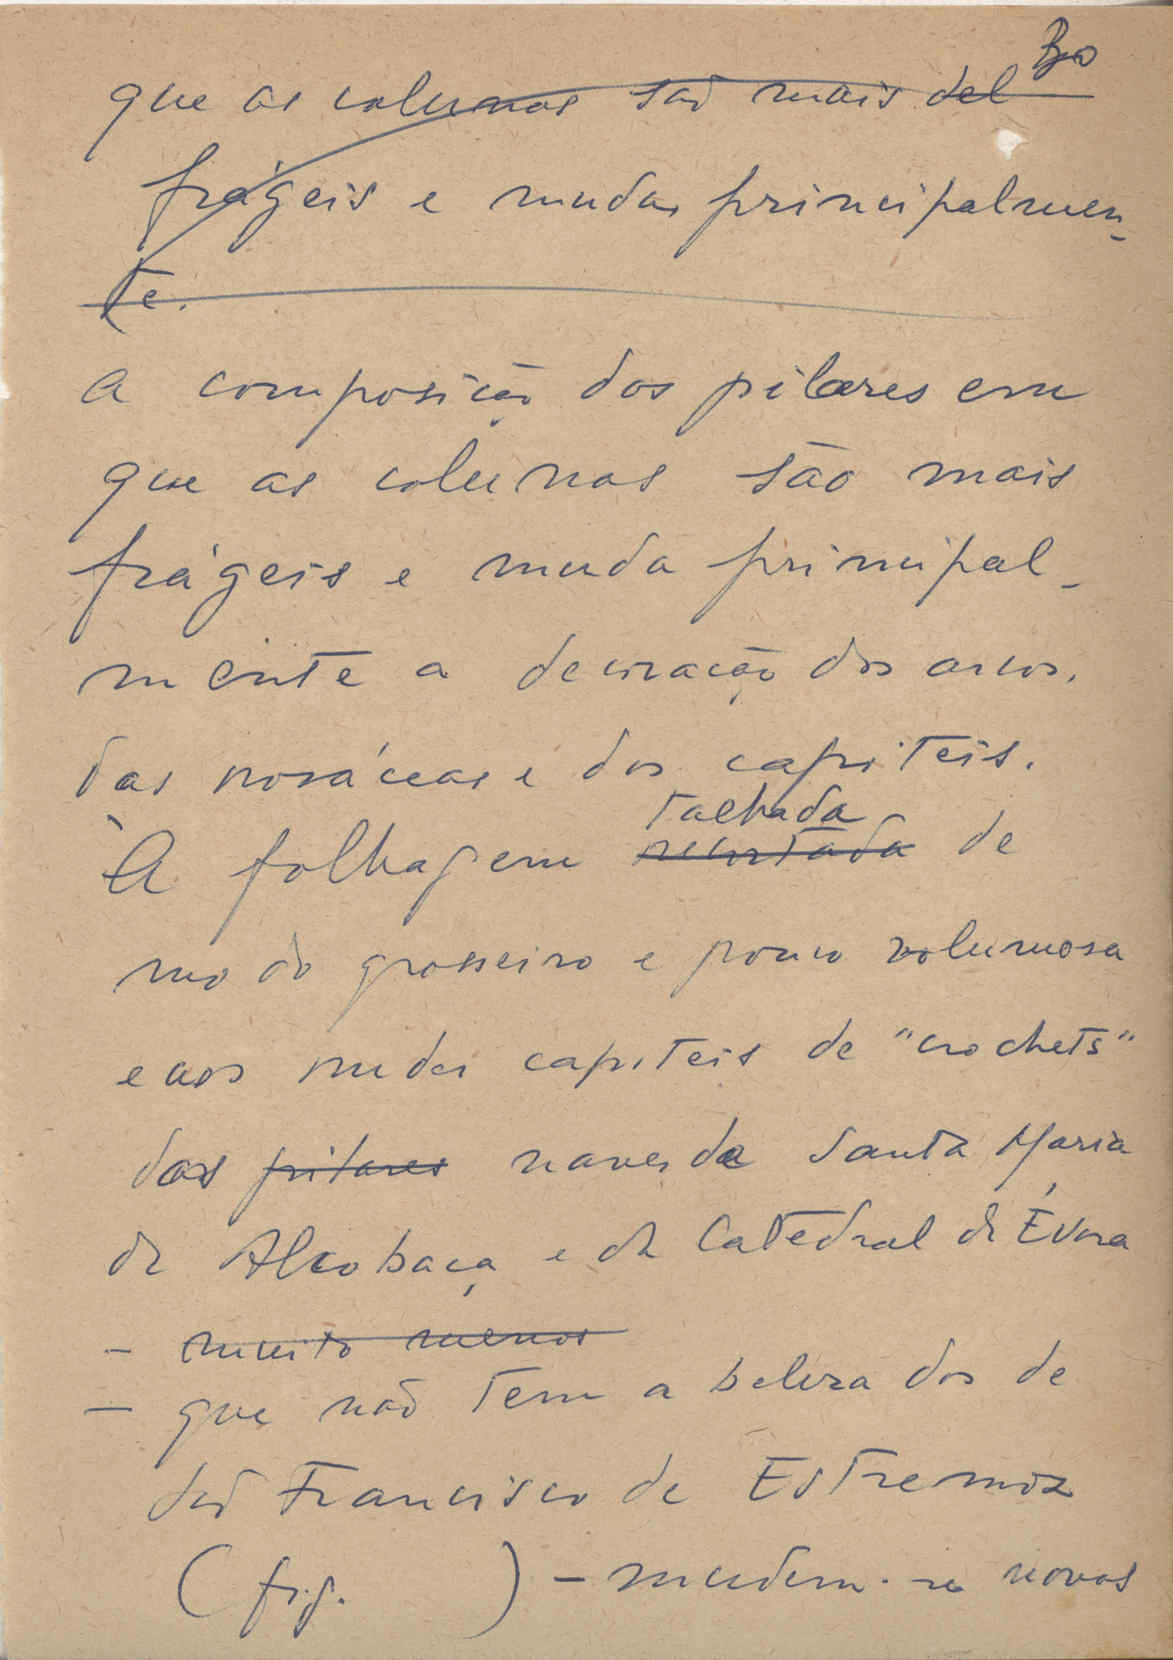 que as colunas são mais del
frágeis e mudas principalmen-
te.
a composição dos pilares em
que as colunas são mais
frágeis e muda principal-
mente a decoração dos arcos.
das rosáceas e dos capiteis.
talhada
À folhagem recortada de
modo grosseiro e pouco volumosa
e aos rudes capiteis de "crochets"
das pilares naves de Santa Maria
de Alcobaça e da Catedral de Évora
- muito menos
- que não tem a beleza dos de
São Francisco de Estremoz
(fig. ) - mudem-se novos